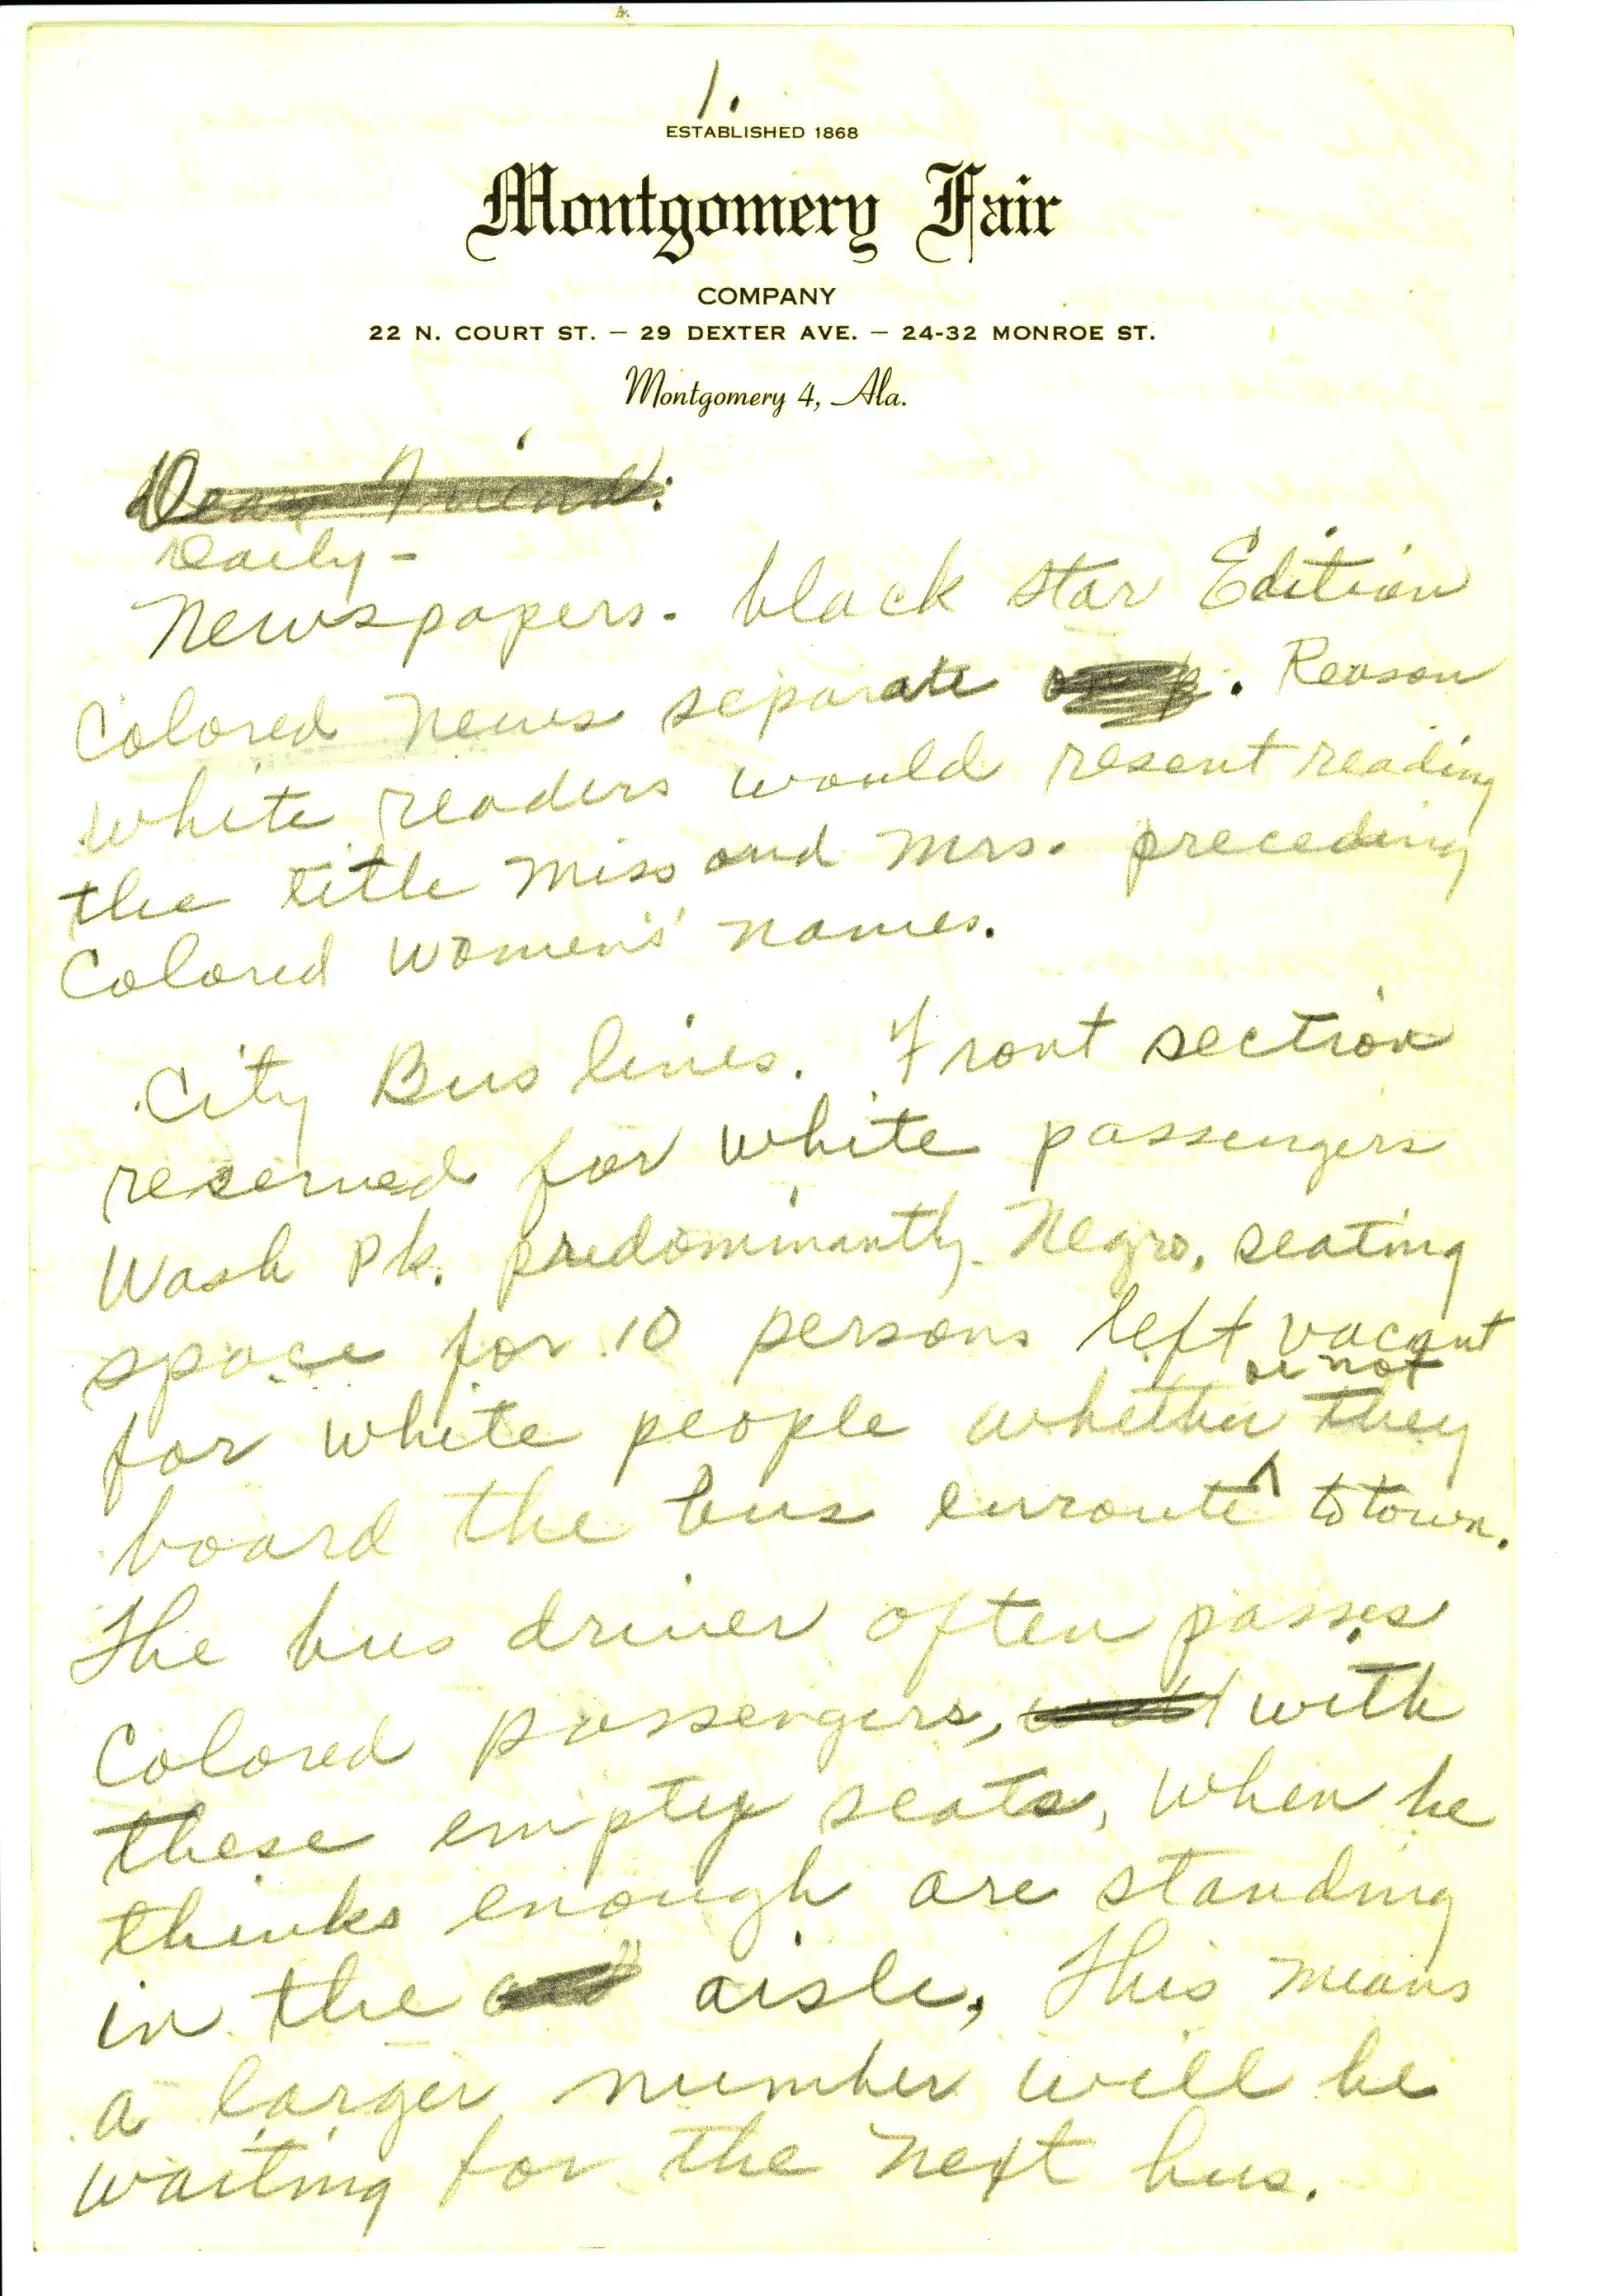 1.
ESTABLISHED 1868
Montgomery Fair
COMPANY
22 N. COURT ST. — 29 DEXTER AVE. — 24-32 MONROE ST.
Montgomery 4, Ala.
Dear Friend:
Daily -
Newspapers. black star Edition
Colored News separate . Reason
white readers would resent reading
the title Miss and Mrs. preceding
Colored women's' names.
City Bus lines. Front section
reserved for white passengers
Wash Pk. predominantly Negro, seating
space for 10 persons left vacant
or not
for white people whether they
board the bus enroute ^ to town.
The bus driver often passes
colored passengers, with
these empty seats, when he
thinks enough are standing
in the aisle, This means
a larger number will be
waiting for the next bus.